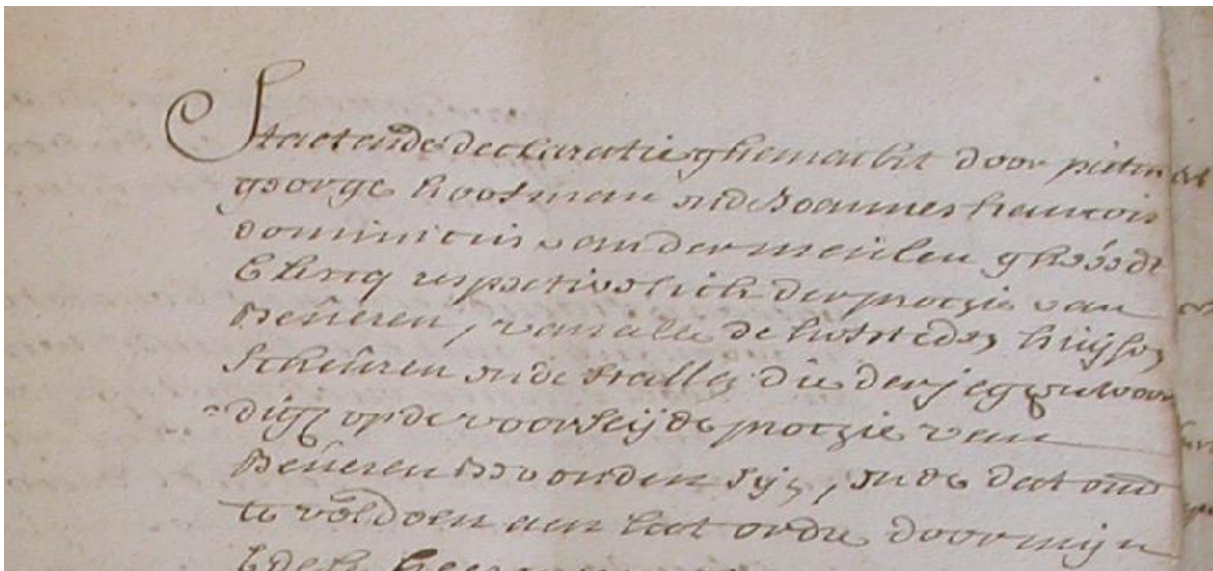 Staet ende declaratie ghemackt door pieter
george hooftman ende Joannes francois
dominicus van der meulen ghesede
Clercq respectivelick der prochie van
Beveren, van alle de hofsteden huijsen
Schueren ende stallen die der jegenwoor
digh op de voorseijde prochie van
Beveren bevonden sijn, ende dat om
te voldoen aen het ordre door mijn
Edele heeren